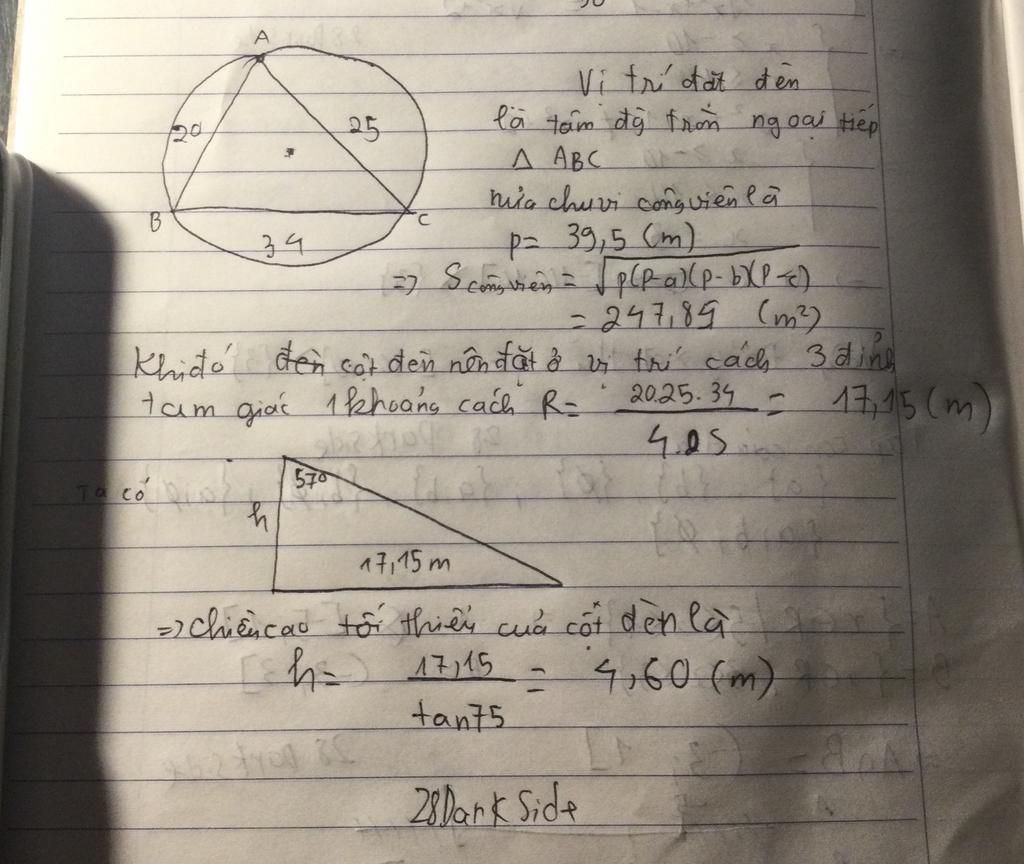 A
20
25
B
C
34
Vị trí đặt đèn
là tâm đg tròn ngoại tiếp
Δ ABC
nửa chu vi công viên là
p= 39,5 (m)
=> S công viên = √p(p-a)(p-b)(p-c)
= 247,85 (m²)
Khi đó đèn cột đèn nên đặt ở vị trí cách 3 đỉnh
tam giác 1 khoảng cách R= 20.25.34 / 4.S = 17,15 (m)
Ta có
57°
h
17,15m
=> chiều cao tối thiểu của cột đèn là
h= 17,15 / tan75 = 4,60 (m)
28Dark Side